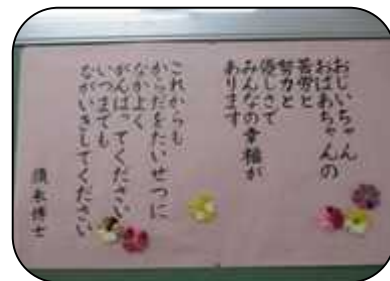 おじいちゃん
おばあちゃんの
苦労と
努力と
優しさで
みんなの幸福が
あります
これからも
からだをたいせつに
なかよく
がんばってください
いつまでも
ながいきしてください